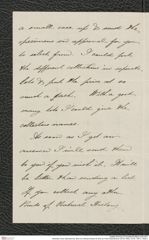 a small case up & send the
specimens on approval for you
to select from. I could put
the different collections in separate
lots & put the price at so
much a pack. With a good
many lots I could give the
collectors names.
As soon as I get an
answer I will send them
to you if you wish it. It will
be better than sending a list
If you collect any other
kinds of Natural History